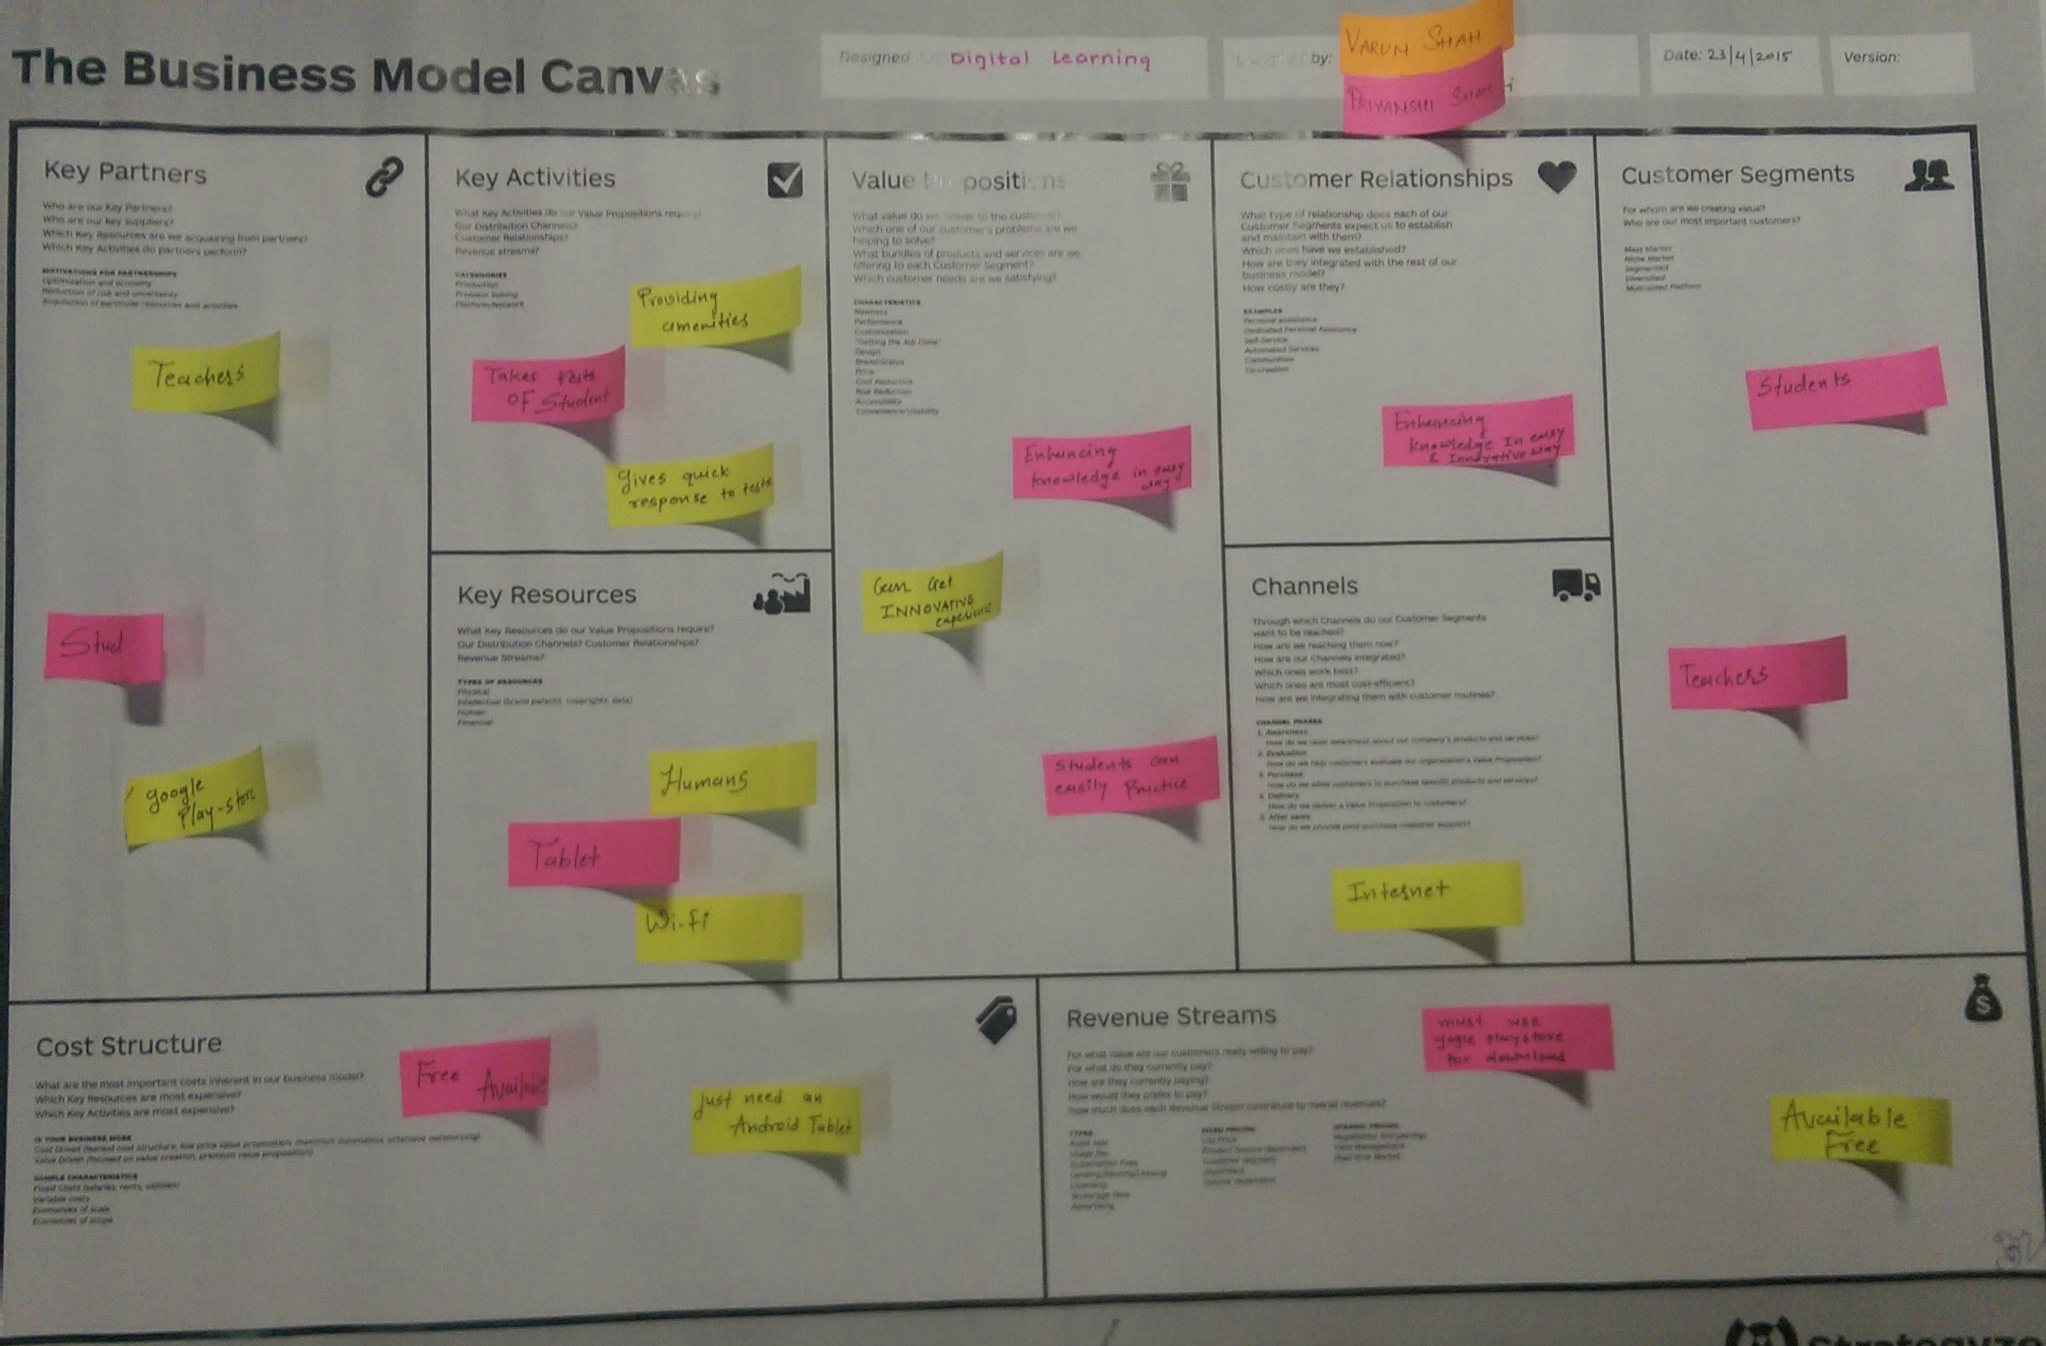 The Business Model Canvas
Designed
Digital Learning
by:
VARUN SHAH
PRIYANSHI SHAH
Date: 23/4/2015
Version:
Key Partners
Who are our Key Partners?
Who are our key suppliers?
Which Key Resources are we acquiring from partners?
Which Key Activities do partners perform?
MOTIVATIONS FOR PARTNERSHIPS
Optimization and economy
Reduction of risk and uncertainty
Acquisition of particular resources and activities
Teachers
Stud
google
Play-store
Key Activities
What Key Activities do our Value Propositions require?
Our Distribution Channels?
Customer Relationships?
Revenue streams?
CATEGORIES
Production
Problem Solving
Platform/Network
Providing
amenities
Takes tests
OF Student
Gives quick
response to tests
Key Resources
What Key Resources do our Value Propositions require?
Our Distribution Channels? Customer Relationships?
Revenue Streams?
TYPES OF RESOURCES
Physical
Intellectual (brand patents, copyrights, data)
Human
Financial
Humans
Tablet
Wi-fi
Value Propositions
What value do we deliver to the customer?
Which one of our customer's problems are we
helping to solve?
What bundles of products and services are we
offering to each Customer Segment?
Which customer needs are we satisfying?
CHARACTERISTICS
Newness
Performance
Customization
"Getting the Job Done"
Design
Brand/Status
Price
Cost Reduction
Risk Reduction
Accessibility
Convenience/Usability
Enhancing
knowledge in easy
way
Can Get
INNOVATIVE
experience
Students can
easily Practice
Customer Relationships
What type of relationship does each of our
Customer Segments expect us to establish
and maintain with them?
Which ones have we established?
How are they integrated with the rest of our
business model?
How costly are they?
EXAMPLES
Personal assistance
Dedicated Personal Assistance
Self-Service
Automated Services
Communities
Co-creation
Enhancing
knowledge In easy
& Innovative way
Channels
Through which Channels do our Customer Segments
want to be reached?
How are we reaching them now?
How are our Channels integrated?
Which ones work best?
Which ones are most cost-efficient?
How are we integrating them with customer routines?
CHANNEL PHASES
1. Awareness
How do we raise awareness about our company's products and services?
2. Evaluation
How do we help customers evaluate our organization's Value Proposition?
3. Purchase
How do we allow customers to purchase specific products and services?
4. Delivery
How do we deliver a Value Proposition to customers?
5. After sales
How do we provide post-purchase customer support?
Internet
Customer Segments
For whom are we creating value?
Who are our most important customers?
Mass Market
Niche Market
Segmented
Diversified
Multi-sided Platform
Students
Teachers
Cost Structure
What are the most important costs inherent in our business model?
Which Key Resources are most expensive?
Which Key Activities are most expensive?
IS YOUR BUSINESS MORE
Cost Driven (leanest cost structure, low price value proposition, maximum automation, extensive outsourcing)
Value Driven (focused on value creation, premium value proposition)
SAMPLE CHARACTERISTICS
Fixed Costs (salaries, rents, utilities)
Variable costs
Economies of scale
Economies of scope
Free Available
Just need an
Android Tablet
Revenue Streams
For what value are our customers really willing to pay?
For what do they currently pay?
How are they currently paying?
How would they prefer to pay?
How much does each Revenue Stream contribute to overall revenues?
TYPES
Asset sale
Usage fee
Subscription Fees
Lending/Renting/Leasing
Licensing
Brokerage fees
Advertising
FIXED PRICING
List Price
Product feature dependent
Customer segment
dependent
Volume dependent
DYNAMIC PRICING
Negotiation (bargaining)
Yield Management
Real-time-Market
must use
gogle playstore
for download
Available
Free
Strategyze